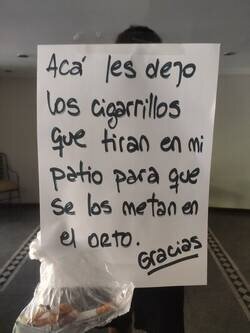 Acá les dejo
los cigarrillos
que tiran en mi
patio para que
se los metan en
el orto.
Gracias